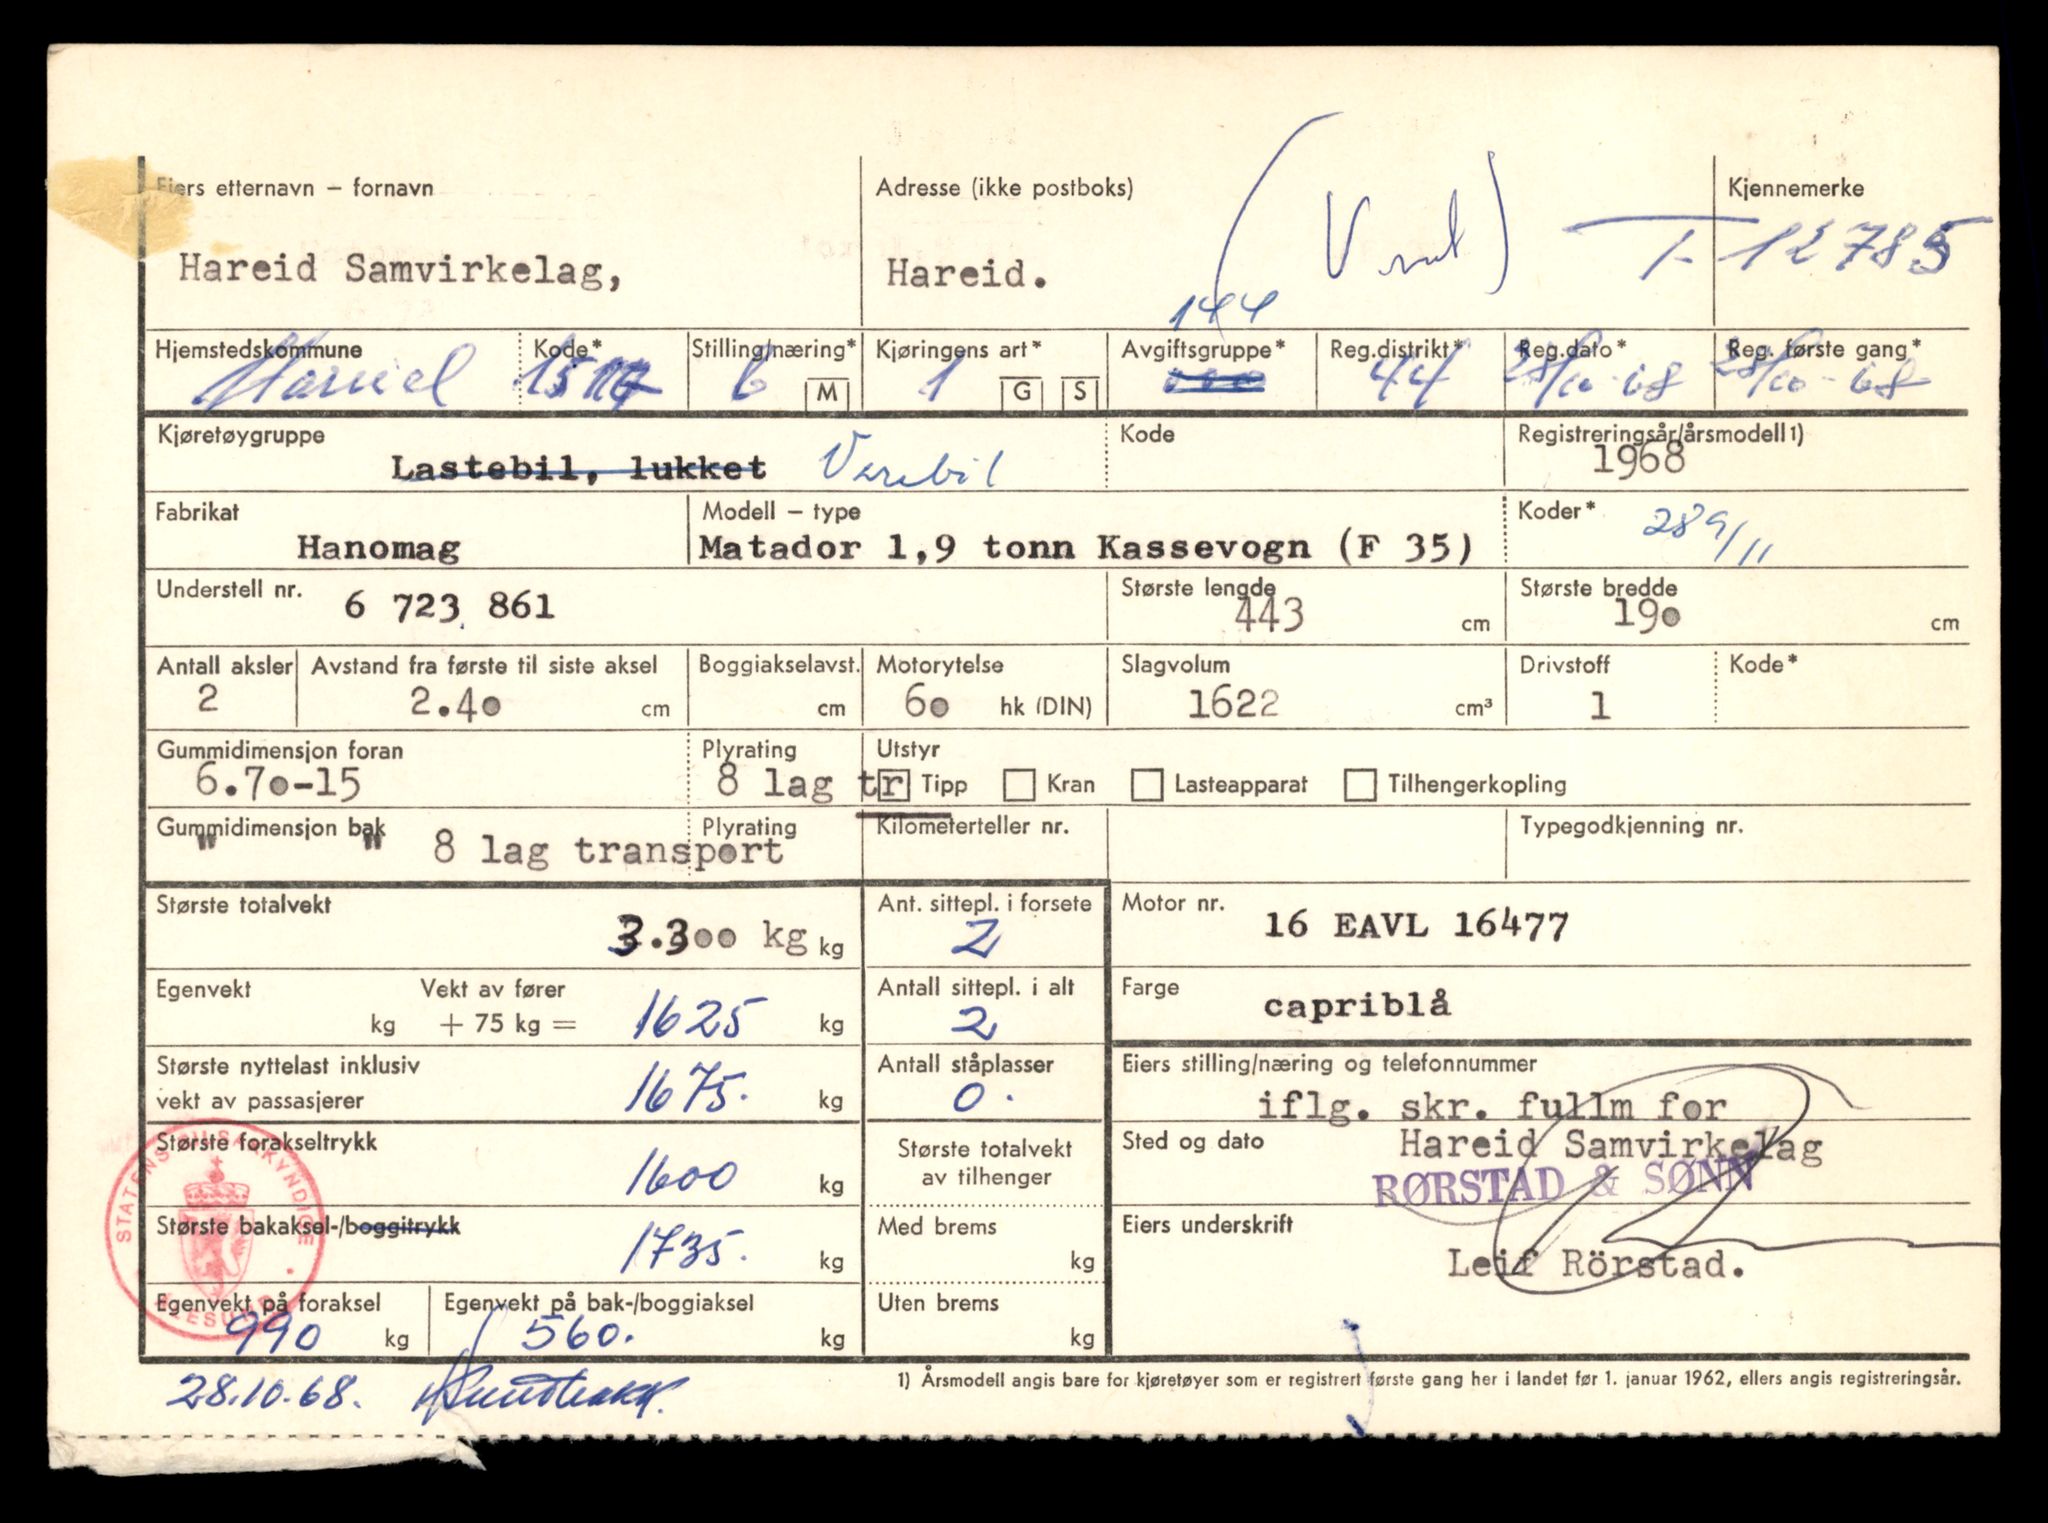 Eiers etternavn – fornavn Adresse (ikke postboks) Kjennemerke
Hareid Samvirkelag, Hareid. T-12785
144
Hjemstedskommune Kode* Stilling/næring* Kjøringens art* Avgiftsgruppe* Reg.distrikt* Reg.dato* Reg. første gang*
Hareid 1517 6 M 1 G S 44 28/10-68 28/10-68
Kjøretøygruppe Kode Registreringsår/årsmodell1)
Lastebil, lukket Varebil 1968
Fabrikat Modell – type Koder* 289/11
Hanomag Matador 1,9 tonn Kassevogn (F 35)
Understell nr. Største lengde Største bredde
6 723 861 443 cm 190 cm
Antall aksler Avstand fra første til siste aksel Boggiakselavst. Motorytelse Slagvolum Drivstoff Kode*
2 2.40 cm cm 60 hk (DIN) 1622 cm³ 1
Gummidimensjon foran Plyrating Utstyr
6.70-15 8 lag tr Tipp Kran Lasteapparat Tilhengerkopling
Gummidimensjon bak Plyrating Kilometerteller nr. Typegodkjenning nr.
" " 8 lag transport
Største totalvekt Ant. sittepl. i forsete Motor nr.
3.300 kg kg 2 16 EAVL 16477
Egenvekt Vekt av fører Antall sittepl. i alt Farge
kg + 75 kg = 1625 kg 2 capriblå
Største nyttelast inklusiv Antall ståplasser Eiers stilling/næring og telefonnummer
vekt av passasjerer 1675. kg 0. iflg. skr. fullm for
Største forakseltrykk Største totalvekt Sted og dato Hareid Samvirkelag
1600 kg av tilhenger RØRSTAD & SØNN
Største bakaksel-/boggitrykk Med brems Eiers underskrift
1735. kg kg Leif Rörstad.
Egenvekt på foraksel Egenvekt på bak-/boggiaksel Uten brems
990 kg 560. kg kg
STATENS BILSAKKYNDIGE
ÅLESUND
28.10.68.
1) Årsmodell angis bare for kjøretøyer som er registrert første gang her i landet før 1. januar 1962, ellers angis registreringsår.